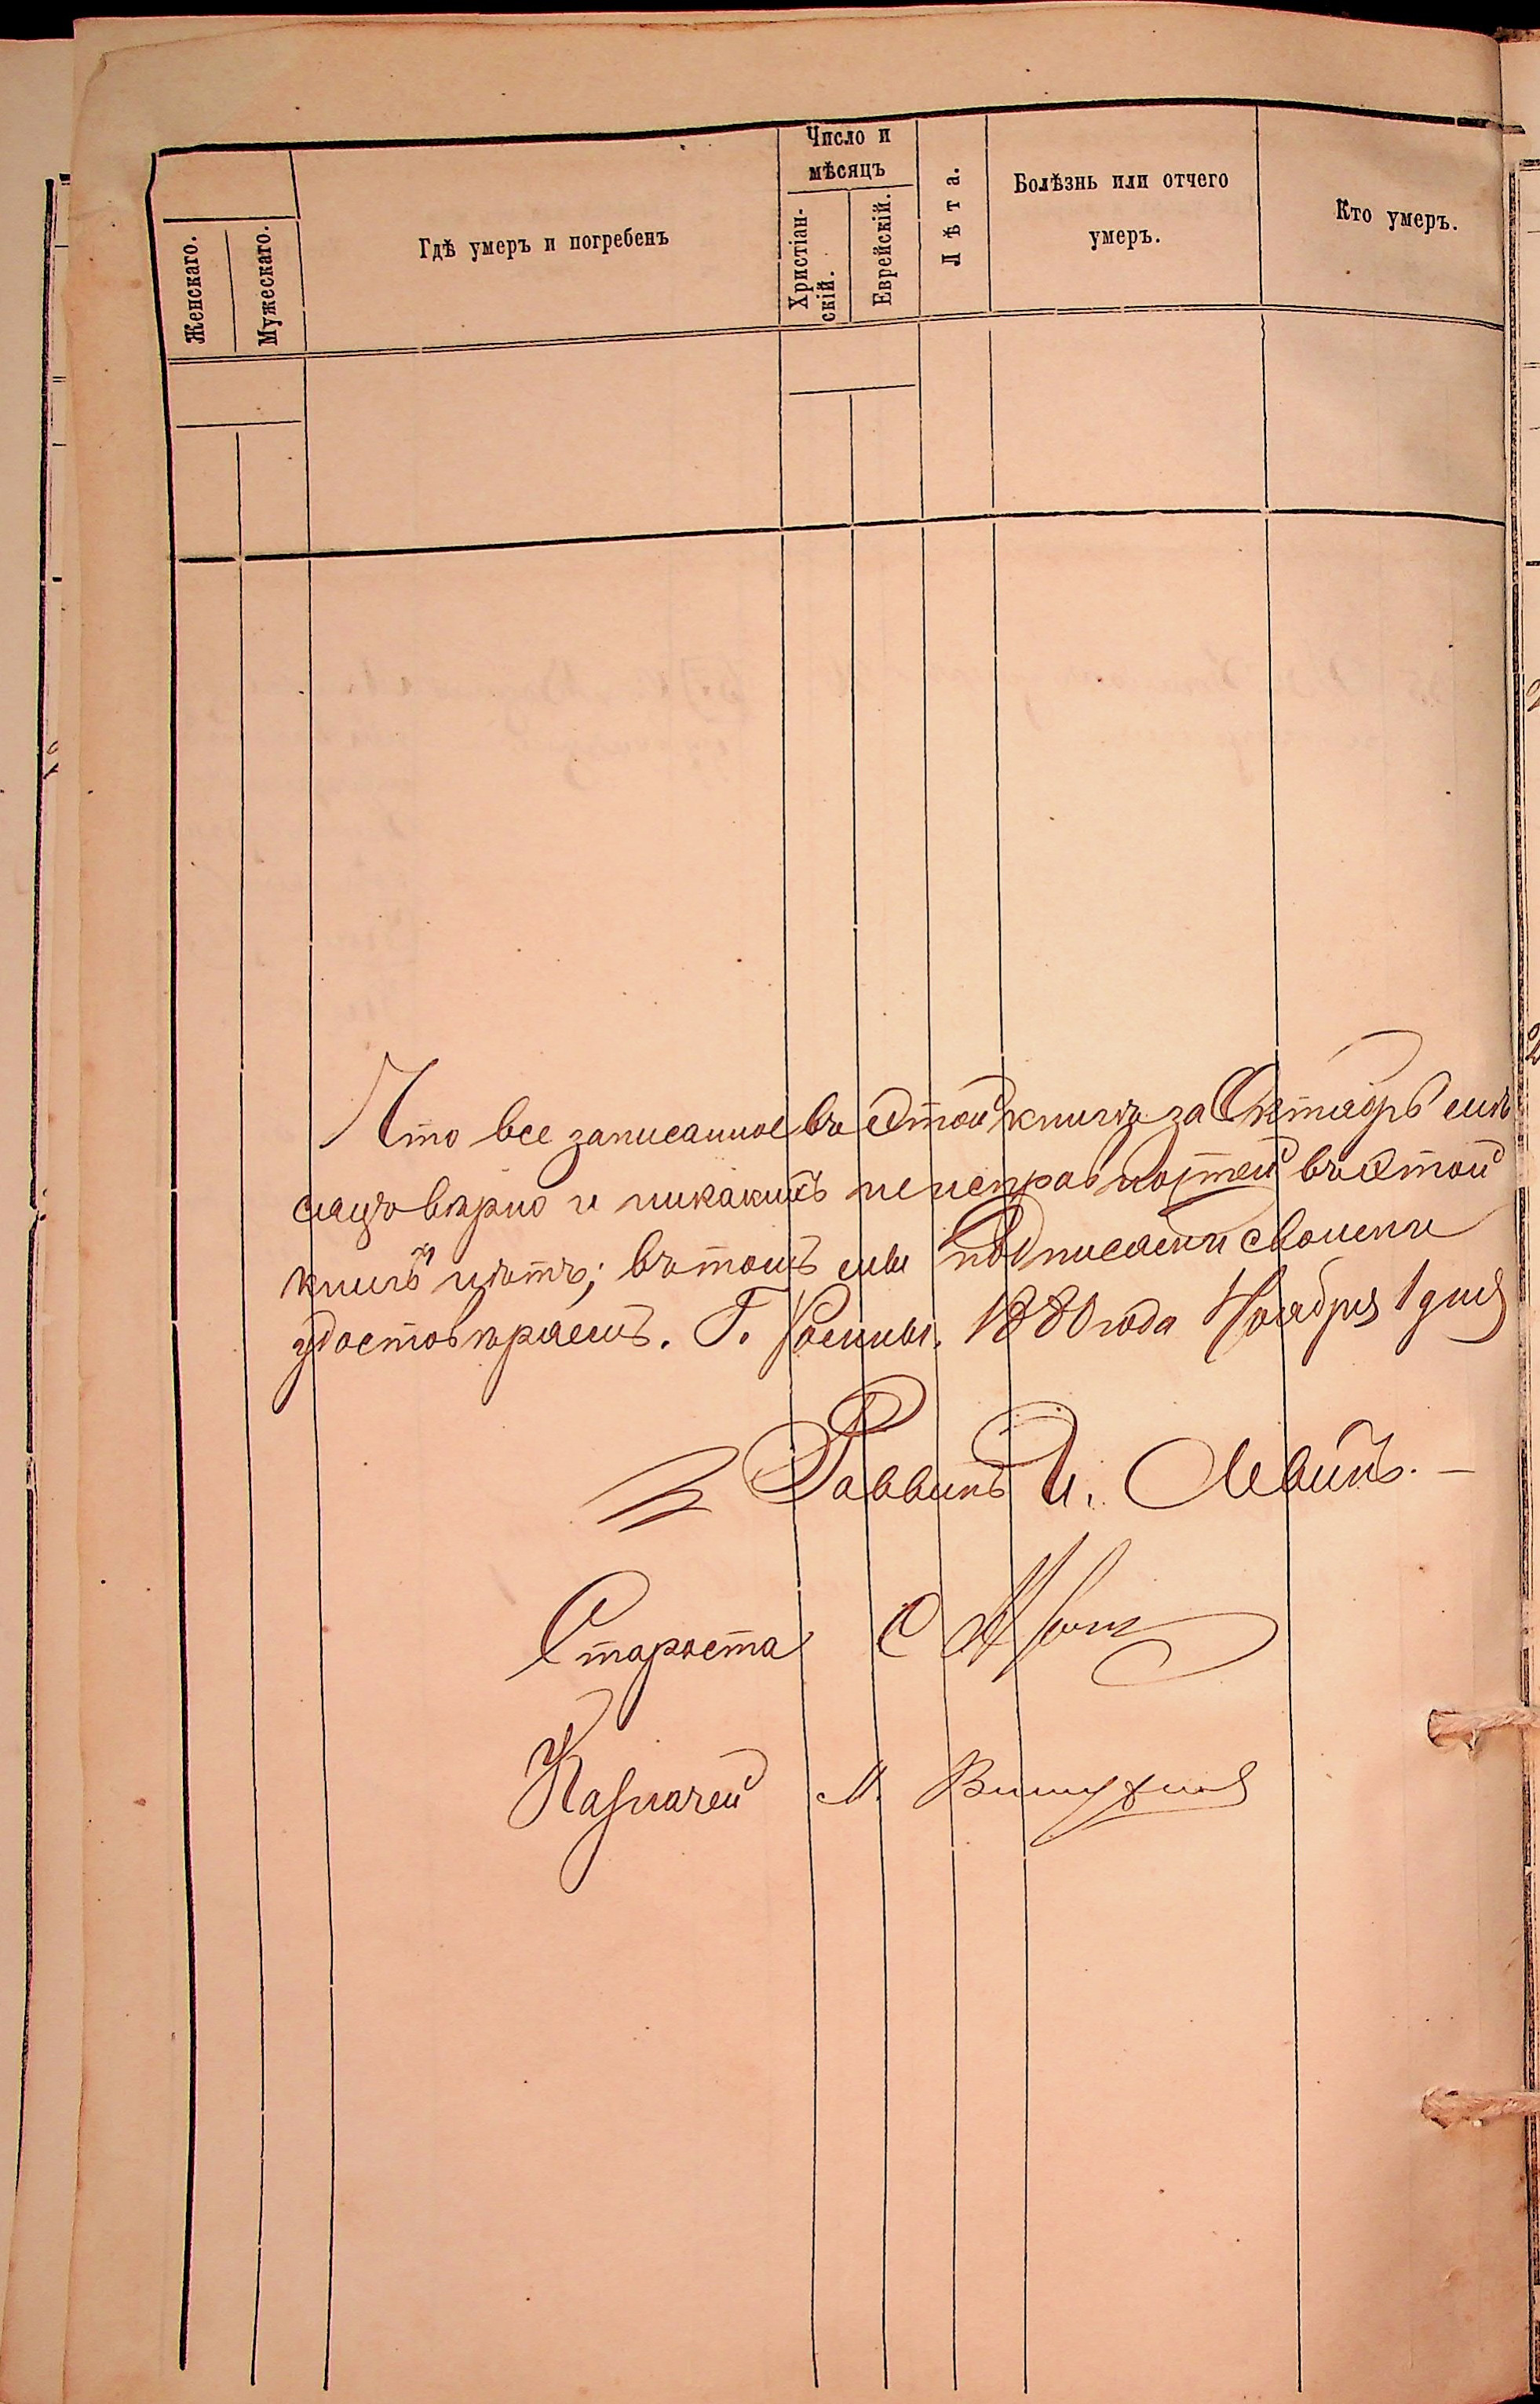 Женскаго.
Мужескаго.
Гдѣ умеръ и погребенъ
Число и
мѣсяцъ
Христіан-
скій.
Еврейскій.
Лѣта.
Болѣзнь или отчего
умеръ.
Кто умеръ.
Что все записанное въ этой книгѣ за Октябрь мѣ
сяцъ вѣрно и никакихъ неисправностей въ этой
книгѣ нѣтъ; въ томъ мы подписами своими
удостовѣряемъ. Г. Ромны. 1880 года Ноября 1 дня
Раввинъ И. Левинъ. —
Староста С
Казначей М.